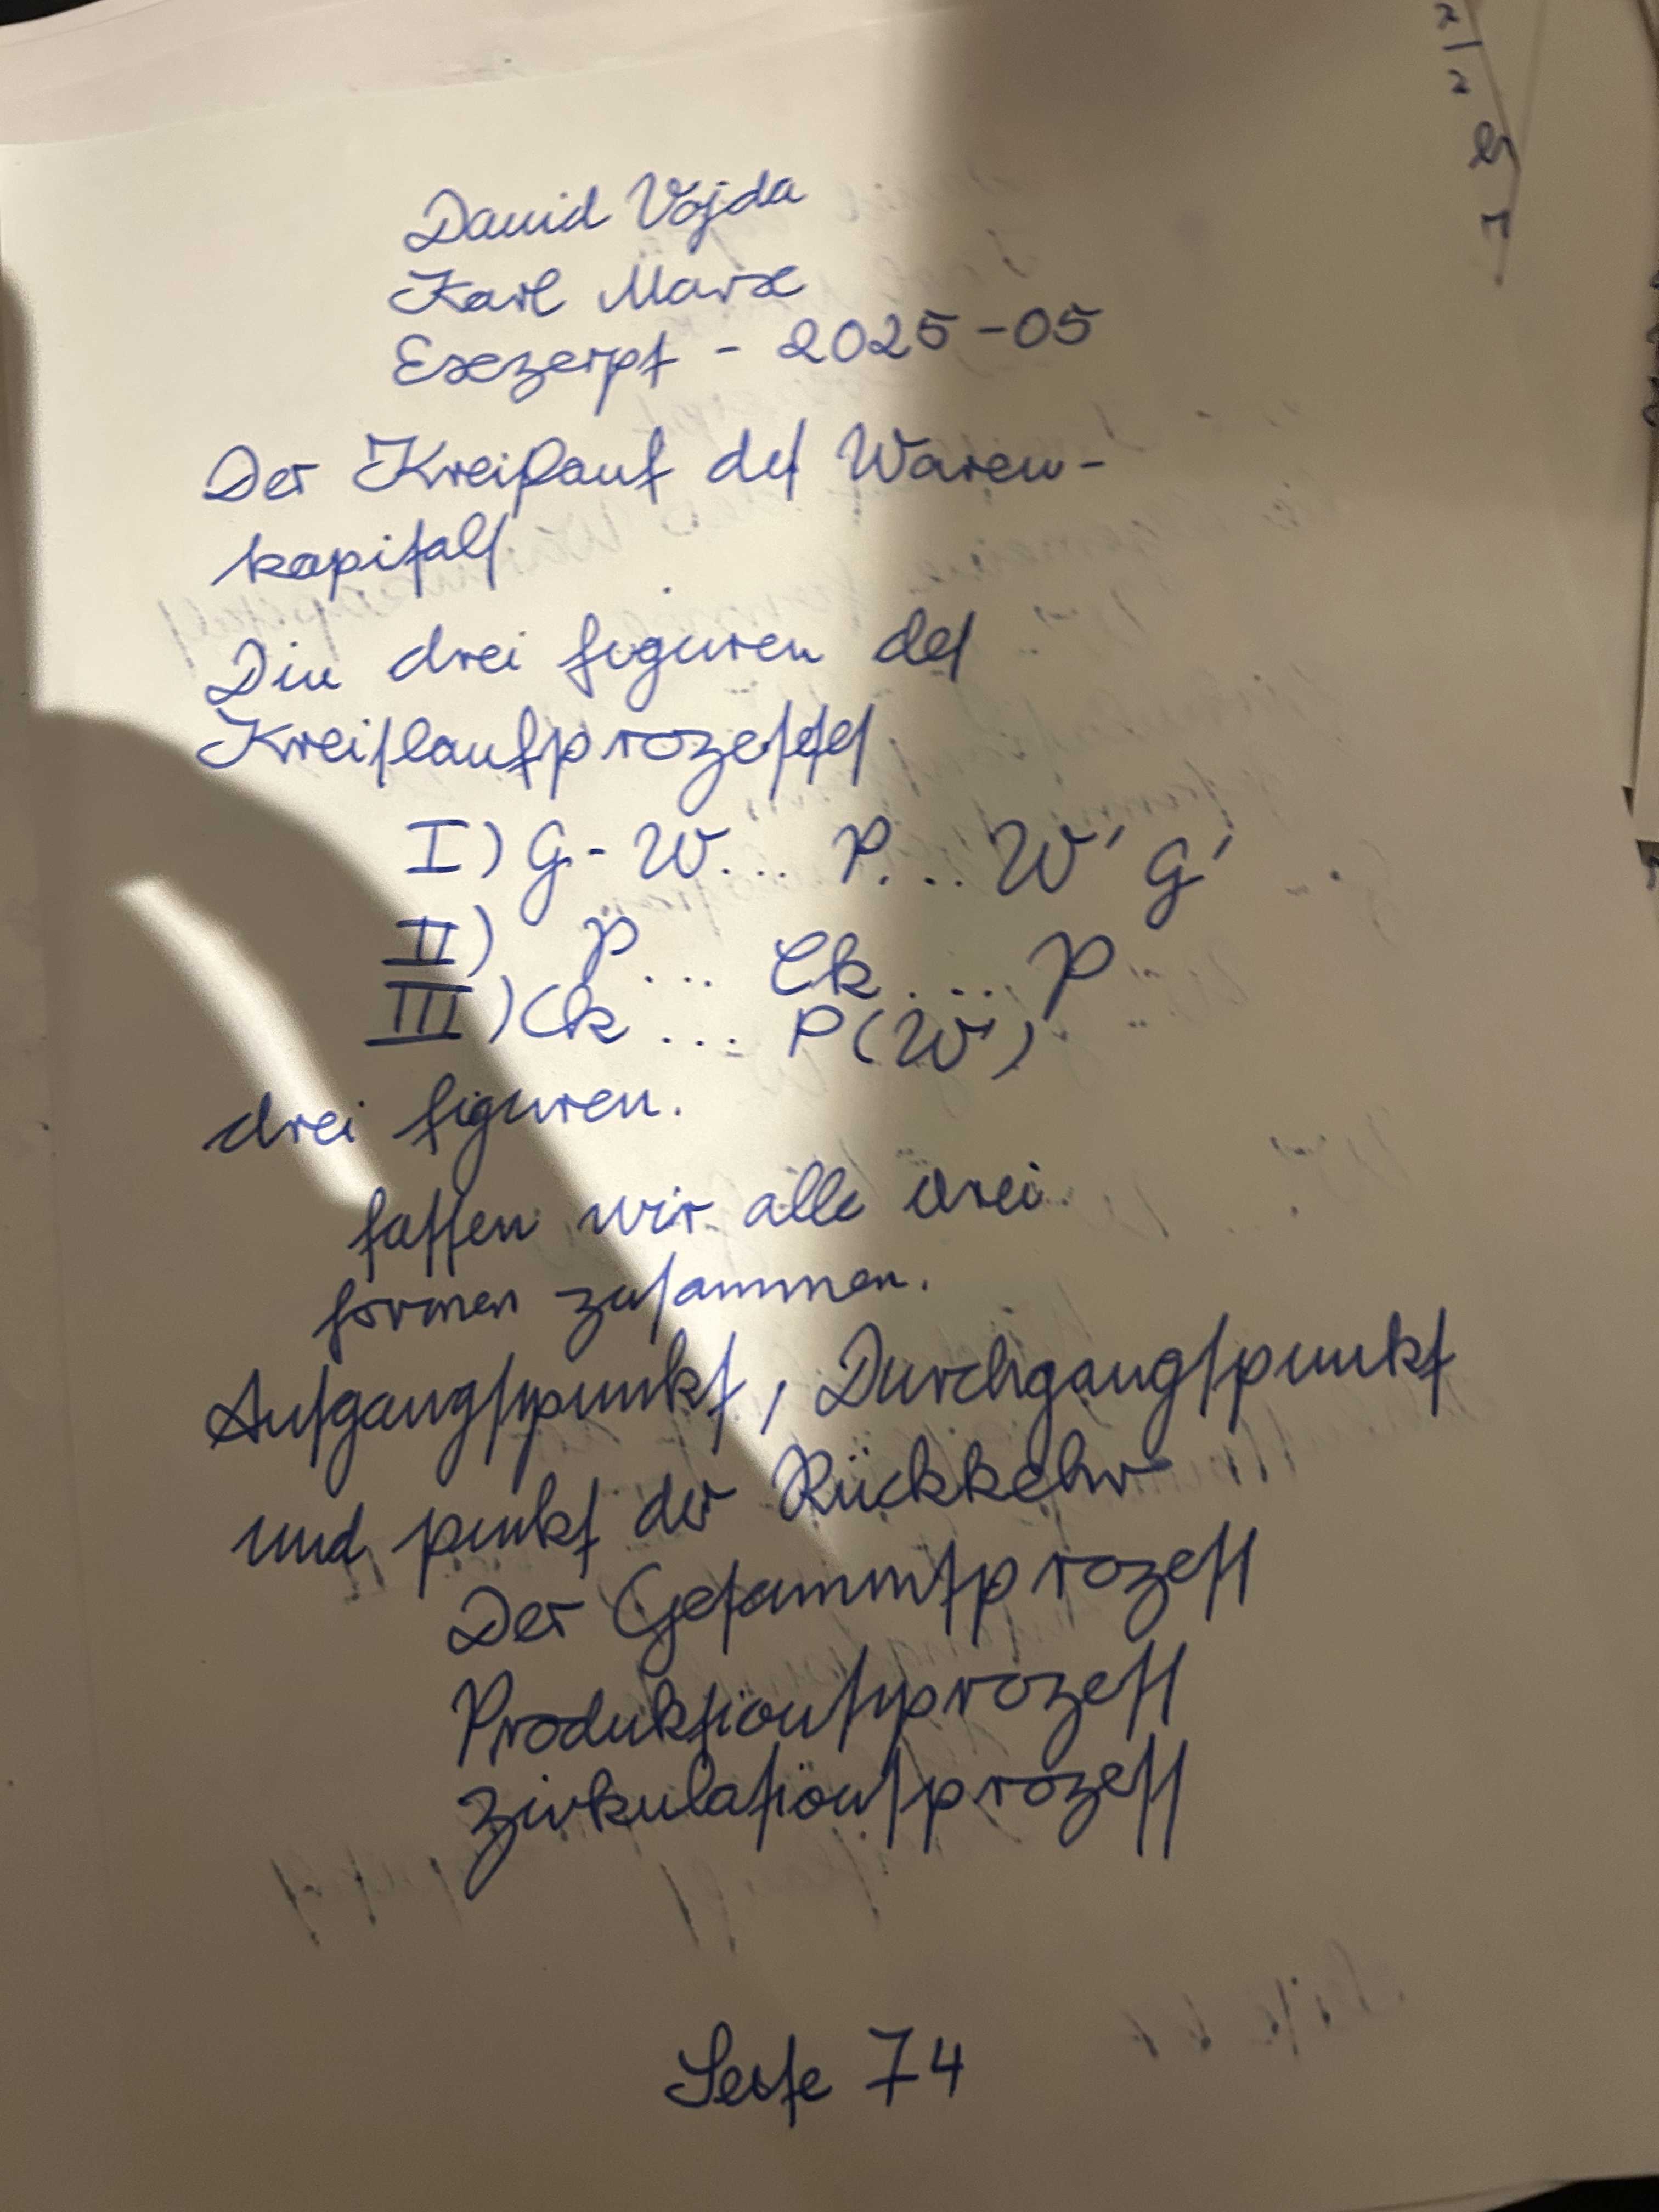 David Vojda
Karl Marx
Exzerpt - 2025-05
Der Kreiſlauf deſ Waren-
kapitalſ
Die drei figuren deſ
Kreiſlaufprozeſſeſ
I) G - W... P... W' G'
II) P... Ck... P
III) Ck... P(W')
drei figuren.
faſſen wir alle drei
formen zuſammen.
Auſgangſpunkt, Durchgangſpunkt
und punkt der Rückkehr
Der Geſammtprozeſſ
Produktionſprozeſſ
Zirkulationſprozeſſ
Seite 74